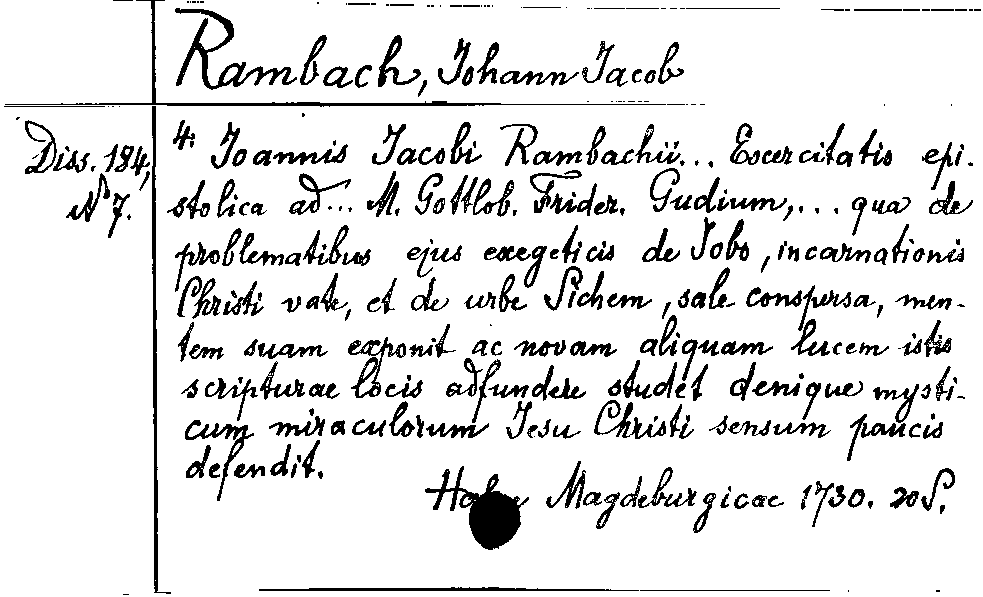 Rambach, Johann Jacob
Diss. 184,
No 7.
4. Joannis Jacobi Rambachii... Exercitatio epi-
stolica ad... M. Gottlob. Frider. Gudium,... qua de
problematibus ejus exegeticis de Jobo, incarnationis
Christi vate, et de urbe Sichem, sale conspersa, men-
tem suam exponit ac novam aliquam lucem istis
scripturae locis adfundere studet denique mysti-
cum miraculorum Jesu Christi sensum paucis
defendit.
Magdeburgicae 1730. 20 S.